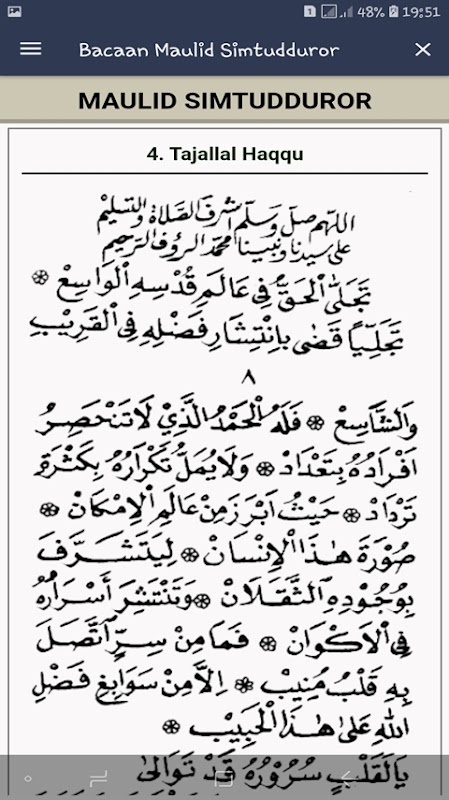 1 48% 19:51
Bacaan Maulid Simtudduror ×
MAULID SIMTUDDUROR
4. Tajallal Haqqu
اللهم صل وسلم اشرف الصلاة والتسليم
على سيدنا ونبينا محمد الرؤف الرحيم
تَجَلَّى الْحَقُّ فِي عَالَمِ قُدْسِهِ الْوَاسِعْ ۞
تَجَلِّيًا قَضٰى بِانْتِشَارِ فَضْلِهِ فِي الْقَرِيْبِ
٨
وَالشَّاسِعْ ۞ فَلَهُ الْحَمْدُ الَّذِيْ لَا تَنْحَصِرُ
اَفْرَادُهُ بِتَعْدَادْ ۞ وَلَا يُمَلُّ تَكْرَارُهُ بِكَثْرَةِ
تَرْدَادْ ۞ حَيْثُ اَبْرَزَ مِنْ عَالَمِ الْاِمْكَانْ ۞
صُوْرَةَ هٰذَا الْاِنْسَانْ ۞ لِيَتَشَرَّفَ
بِوُجُوْدِهِ الثَّقَلَانْ ۞ وَتَنْتَشِرَ اَسْرَارُهُ
فِي الْاَكْوَانْ ۞ فَمَا مِنْ سِرٍّ اتَّصَلَ
بِهِ قَلْبُ مُنِيْبْ ۞ اِلَّا مِنْ سَوَابِغِ فَضْلِ
اللهِ عَلٰى هٰذَا الْحَبِيْبْ ۞
يَا لَقَلْبٍ سُرُوْرُهُ قَدْ تَوَالٰى